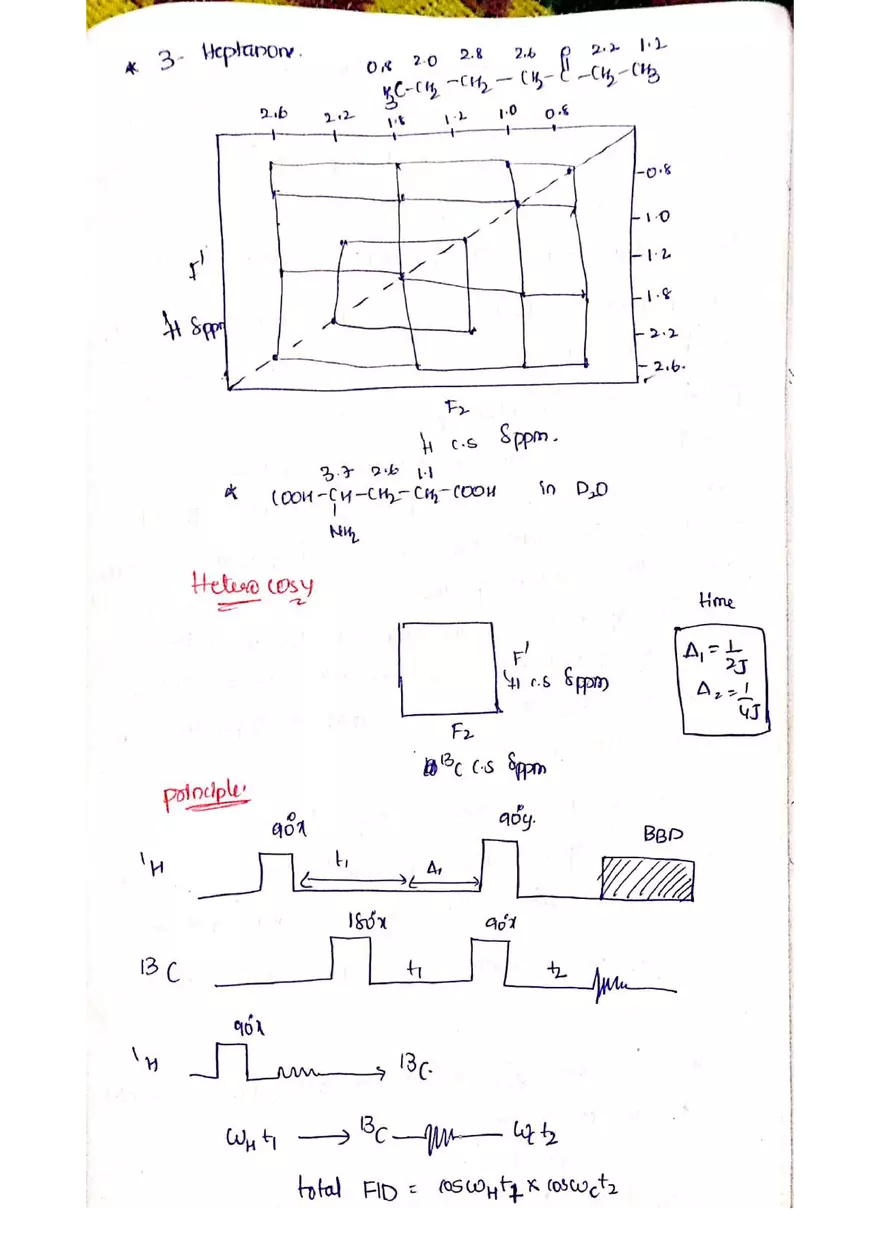 * 3- Heptanone.
0.8 2.0 2.8 2.6 O 2.2 1.2
H3C-CH2-CH2-CH2-C-CH2-CH3
2.6 2.2 1.8 1.2 1.0 0.8
0.8
1.0
1.2
1.8
2.2
2.6.
F1
1H δppm
F2
1H c.s δppm.
3.7 2.6 1.1
* COOH-CH-CH2-CH2-COOH in D2O
NH2
Hetero cosy
time
Δ1 = 1/2J
Δ2 = 1/4J
F1
1H c.s δppm
F2
13C c.s δppm
principle.
90°x 90°y. BBD
1H t1 Δ1
180°x 90°x
13C t1 t2
90°x
1H → 13C.
ωH t1 → 13C ωc t2
total FID = cosωHt1 x cosωCt2